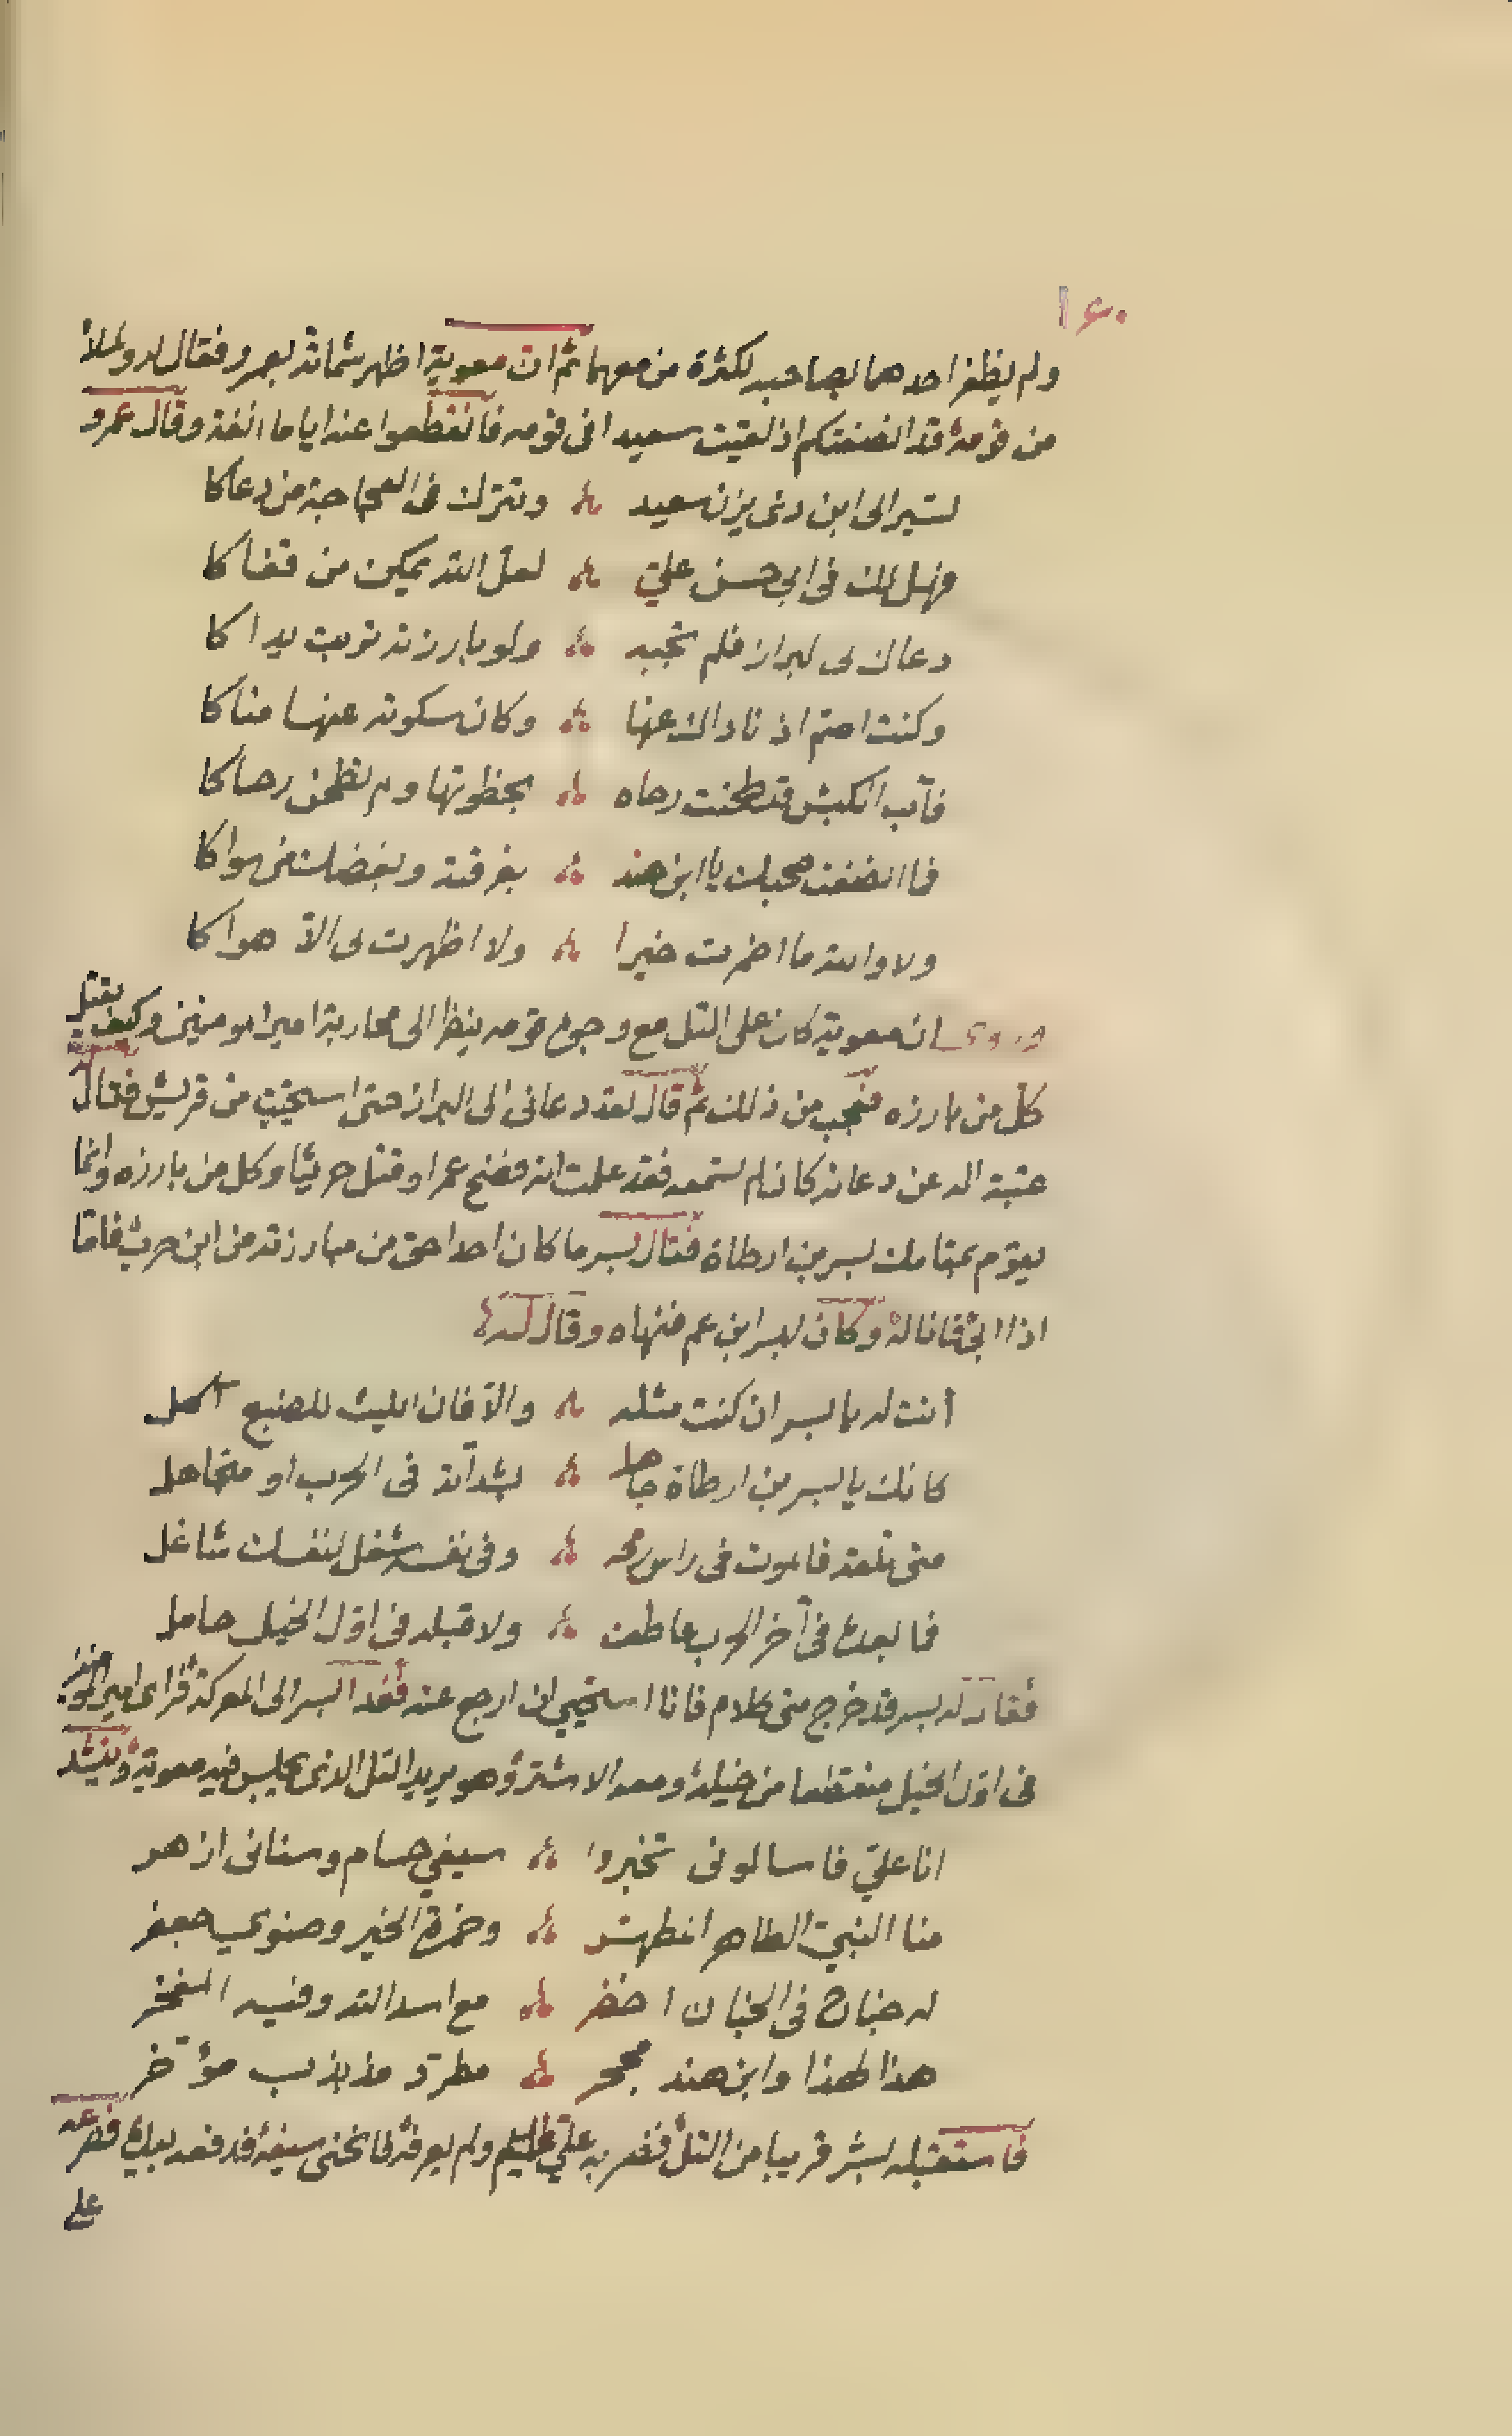 ١٤٠
ولم يظفر احدهما بصاحبه لكثرة من معهما ثم ان معوية اظهر شماتة بعمرو فقال له ولملأ
من قومه قد انصفتكم اذ لقيت سعيدا فى قومه فانقطعوا عنه اياما انفة وقال عمرو
تسير الى ابن ذى يزن سعيد وتترك فى العجاجة من دعاكا
فهل لك فى ابى حسن علىّ لعل الله يمكن من قفاكا
دعاك لى البراز فلم تجبه ولو بارزته تربت يداكا
وكنت اصم اذ ناداك عنها وكان سكوته عنها مناكا
فآب الكبش قد طحنت رحاه بخطوتها ولم تطحن رحاكا
فما انصفت صحبك يا ابن هند بفرقة وبغضك من سواكا
ولا والله ما اضمرت خيرا ولا اظهرت لى الاّ هواكا
وروى ان معوية كان على التل مع وجوه قومه ينظر الى محاربة امير المومنين وكيف يقتل
كل من بارزه فتعجب من ذلك ثم قال لقد دعانى الى البراز حتى استحييت من قريش فقال
عتبة اله عن دعائه كان لم تسمعه فقد علمت انه فضح عمرا وقتل حريثا وكل من بارزه وانما
يقوم بمقامك بسر بن ارطاة فقال بسر ما كان احد احق من مبارزته من ابن حرب فاما
اذا ابيتم فانا له وكان لبسر ابن عم فنهاه وقال له
أنت له يا بسر ان كنت مثله والاّ فان الليث للضبع آكل
كانك يا بسر بن ارطاة جاهل بشداته فى الحرب او متجاهل
متى تلقه فالموت فى راس رمحه وفى نفسه شغل لنفسك شاغل
فما بعده فى آخر الحرب عاطف ولا قبله فى اول الخيل حامل
فقال له بسر قد خرج منى كلام فانا استحيى ان ارجع عنه فغدا بسر الى المعركة فراى امير المومنين
فى اول الخيل منقطعا من خيله ومعه الاشتر وهو يريد التل الذى يجلس فيه معوية وينشد
انا علىّ فاسالونى تخبروا سيفى حسام وسنانى ازهر
منا النبىّ الطاهر المطهر وحمزة الخير وصنوى جعفر
له جناح فى الجنان اخضر مع اسد الله وفيه المفخر
هذا لهذا وابن هند مجحر مطرد مذبذب مؤخر
فاستقبله بسر قريبا من التل فضربه علىّ عليلم ولم يعرفه فانحنى سيفه قد قصد بيده فصرعه
على